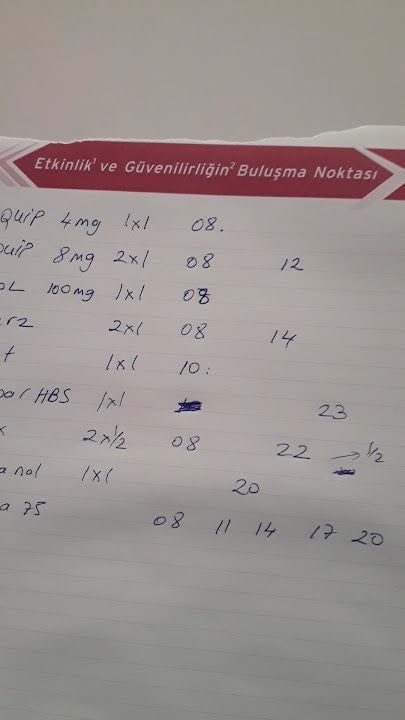 Etkinlik¹ ve Güvenilirliğin² Buluşma Noktası
QUIP 4mg 1x1 08.
QUIP 8mg 2x1 08 12
OL 100mg 1x1 08
rz 2x1 08 14
t 1x1 10:
par HBS 1x1 23
x 2x½ 08 22 → ½
a nol 1x1 20
a 75 08 11 14 17 20